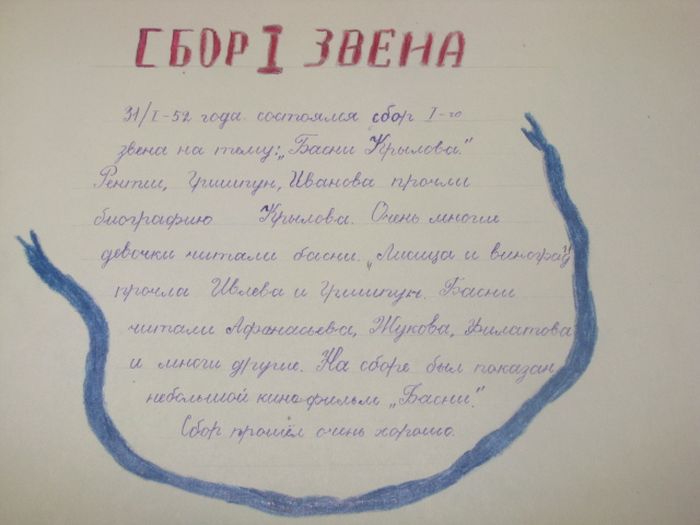 СБОР I ЗВЕНА
31/I-52 года состоялся сбор I-го
звена на тему: „Басни Крылова."
Рентии, Гришпун, Иванова прочли
биографию Крылова. Очень многие
девочки читали басни. „Лисица и виноград"
прочла Ивлева и Гришпун. Басни
читали Афанасьева, Жукова, Филатова
и многи другие. На сборе был показан
небольшой кинофильм „Басни".
Сбор прошёл очень хорошо.